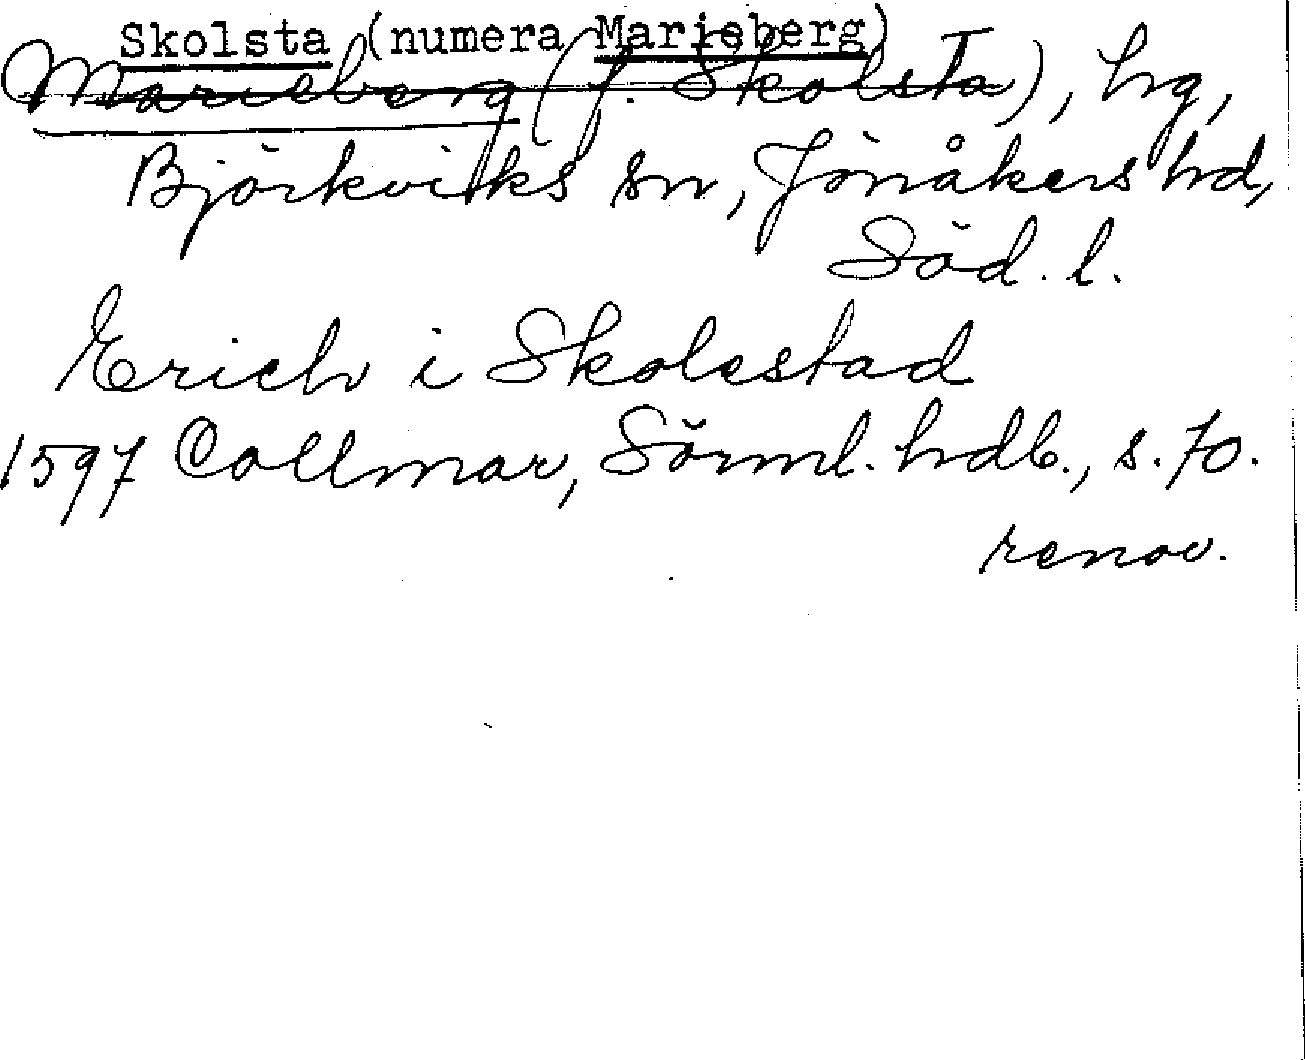 Skolsta (numera Marieberg)
Marieberg (f. Skolsta), hg,
Björkviks sn, Jönåkers hd,
Söd. l.
Erich i Skolestad
1597 Collmar, Sörml. hdb., s. 70.
renov.